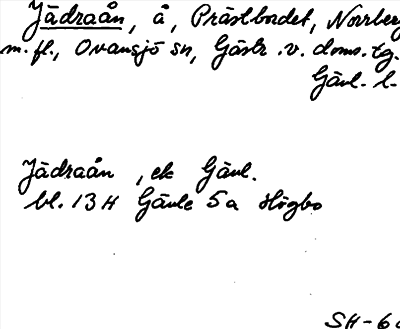 Jädraån, å, Prästbordet, Norrberg
m.fl., Ovansjö sn, Gästr.v.doms.tg.
Gävl. l.
Jädraån, ek Gävl.
bl. 13 H Gävle 5a Högbo
SH-60